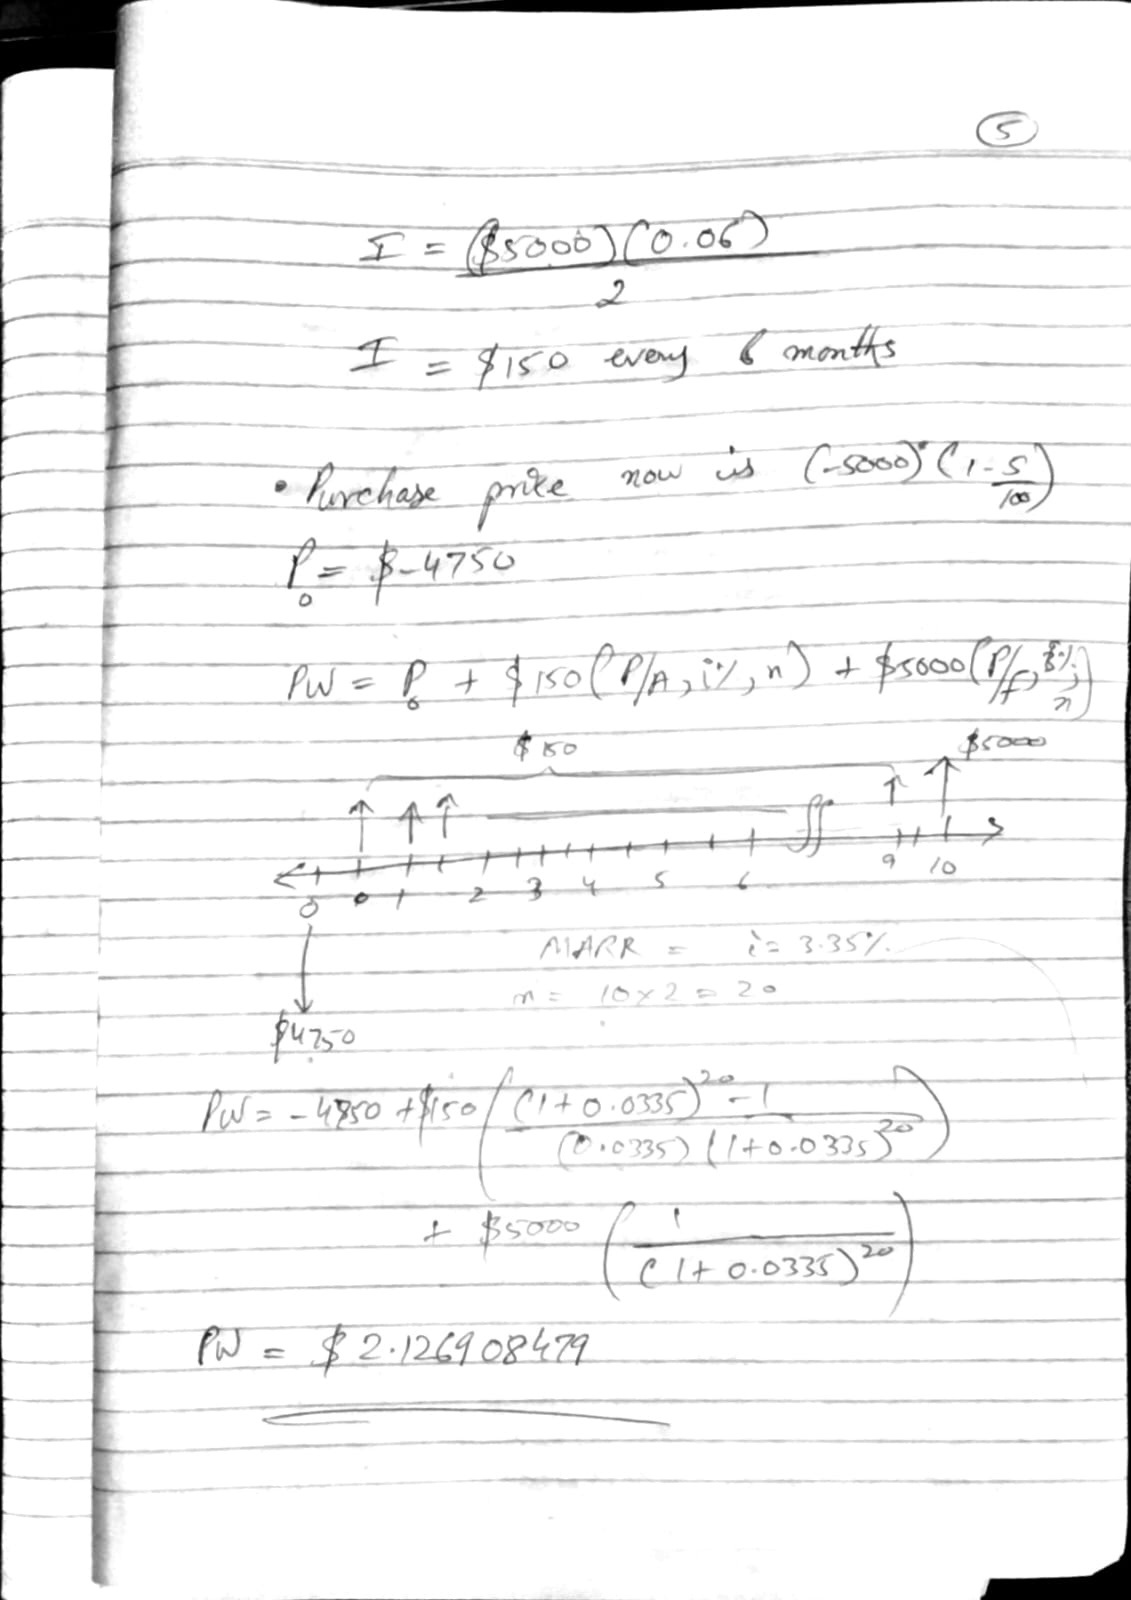 5
I = ($5000)(0.06)
2
I = $150 every 6 months
• Purchase price now is (-5000)·(1-5/100)
P0 = $-4750
PW = P0 + $150(P/A, i%, n) + $5000(P/f, i%, n)
$150 $5000
0 0 1 2 3 4 5 6 9 10
MARR = i = 3.35%
n = 10×2 = 20
$4750
PW = -4750 + $150 ( (1+0.0335)^20 - 1
(0.0335)(1+0.0335)^20 )
+ $5000 ( 1
(1+0.0335)^20 )
PW = $2.126908479